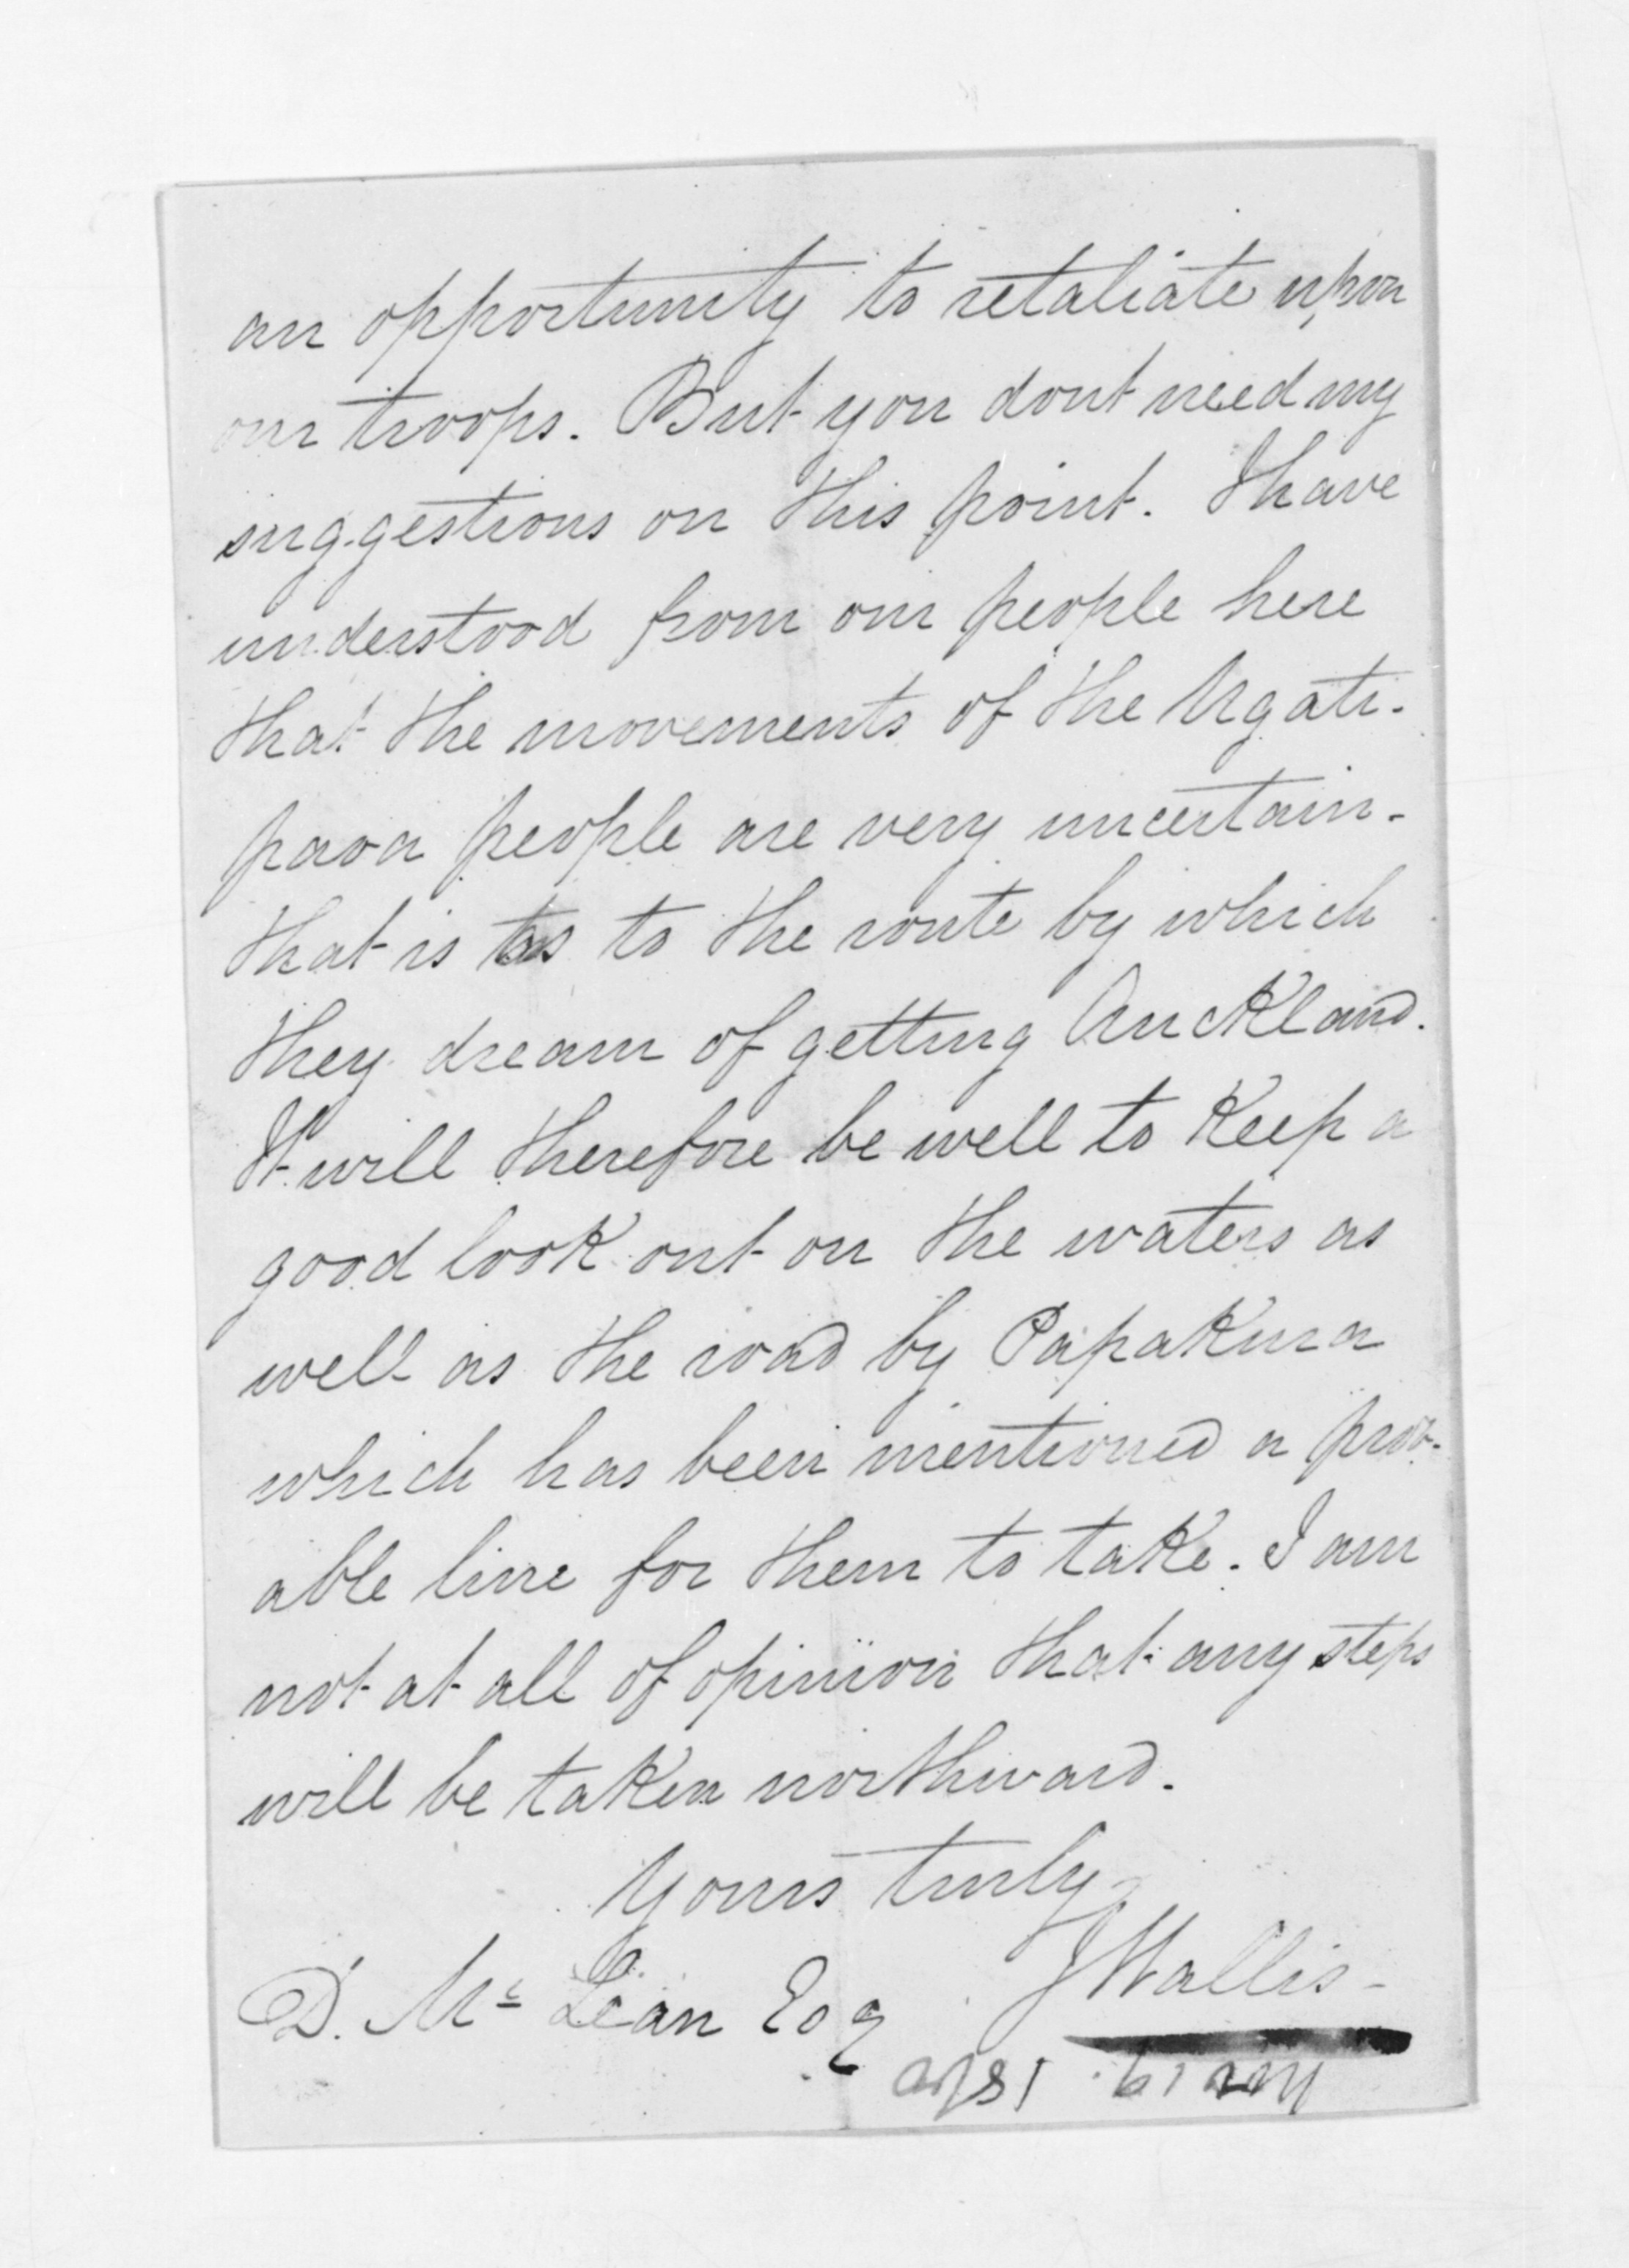 an opportunity to retaliate upon
our troops. But you dont need my
suggestions on this point. I have
understood from our people here
that the movements of the Ngati-
paoa people are very uncertain-
that is as to the route by which
they dream of getting Auckland.
It will therefore be well to keep a
good look out on the waters as
well as the road by Papakura
which has been mentioned a prob-
able line for them to take. I am
not at all of opinion that any steps
will be taken northward.
Yours truly
J Wallis-
D. McLean Esq